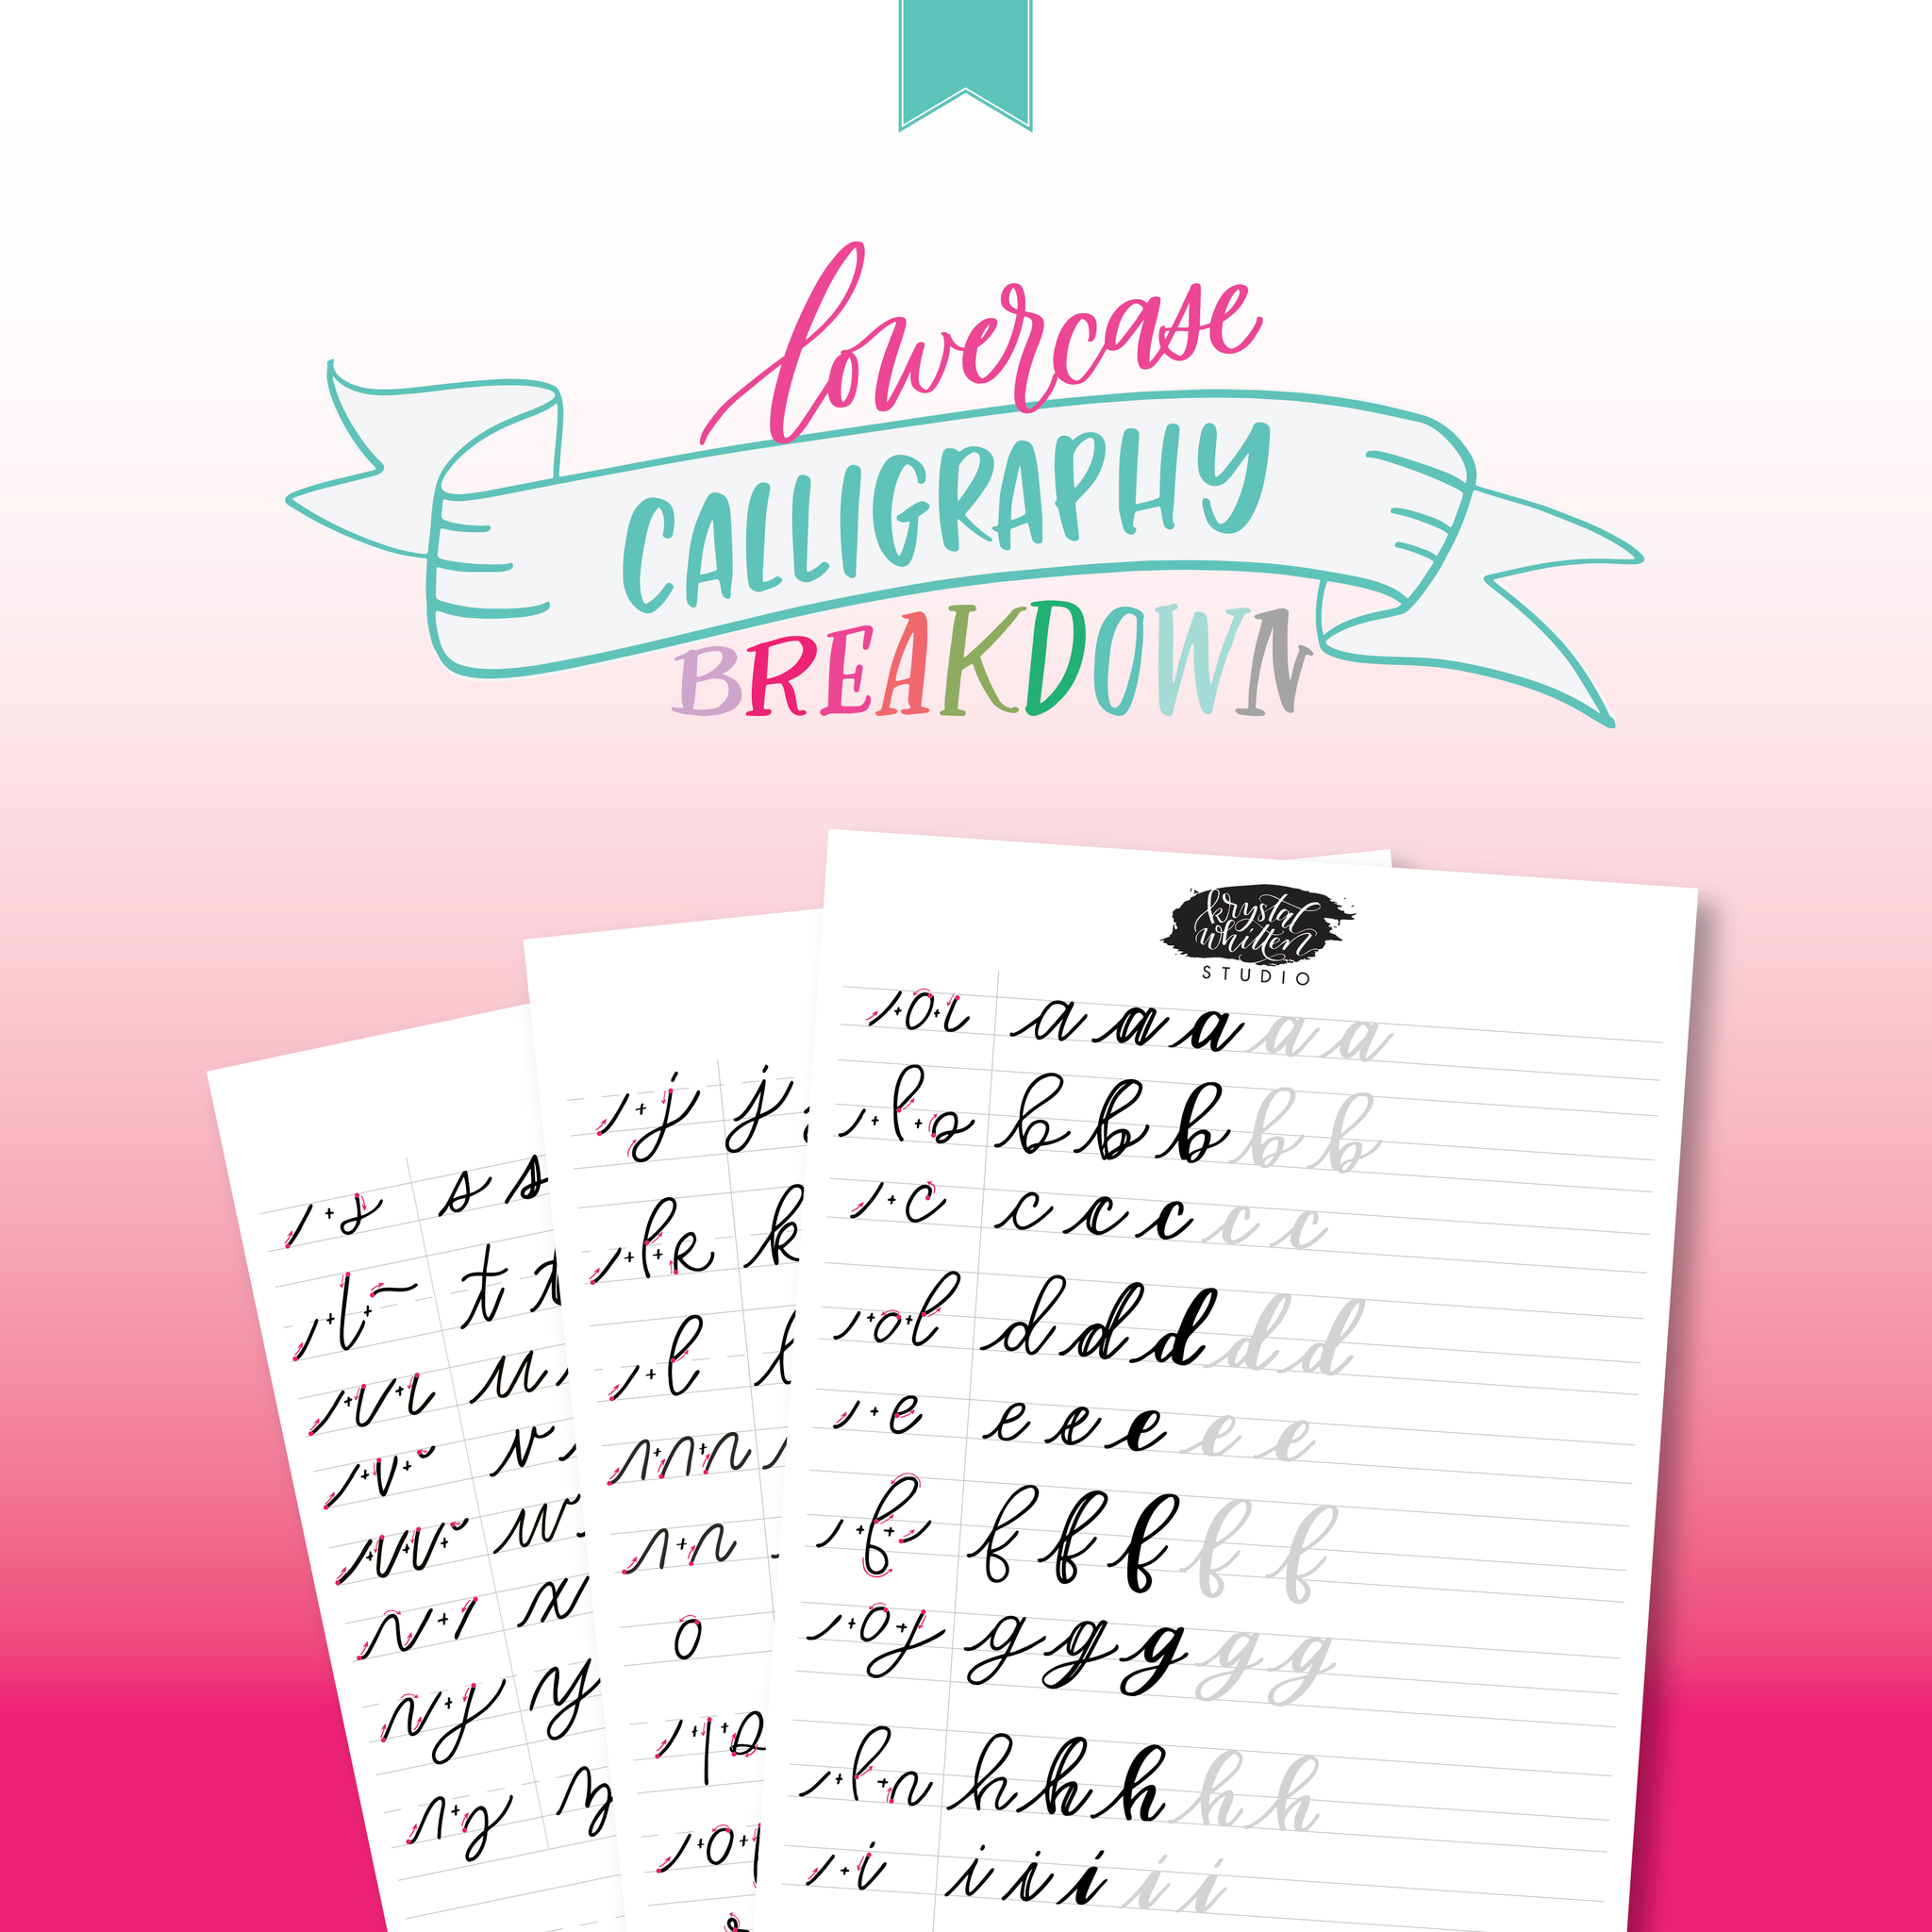 lowercase
CALLIGRAPHY
BREAKDOWN
krystal
whitten
STUDIO
s + s s s
l + l + t t
ı + ı + ı u
ı + v + v
ı + ı + ı + w
x
y
z
ı + j j j
ı + l + k
ı + l
m
n
o
ı + o + ı a a a a a
ı + l + b b b b b
ı + c c c c c c
ı + o + l d d d d d
ı + e e e e e e
ı + f + ı f f f f f
ı + o + j g g g g g
ı + l + n h h h h h
ı + i i i i i i